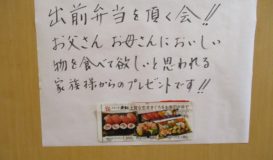 出前弁当を頂く会!!
お父さん お母さんにおいしい
物を食べて欲しいと思われる
家族様からのプレゼントです!!